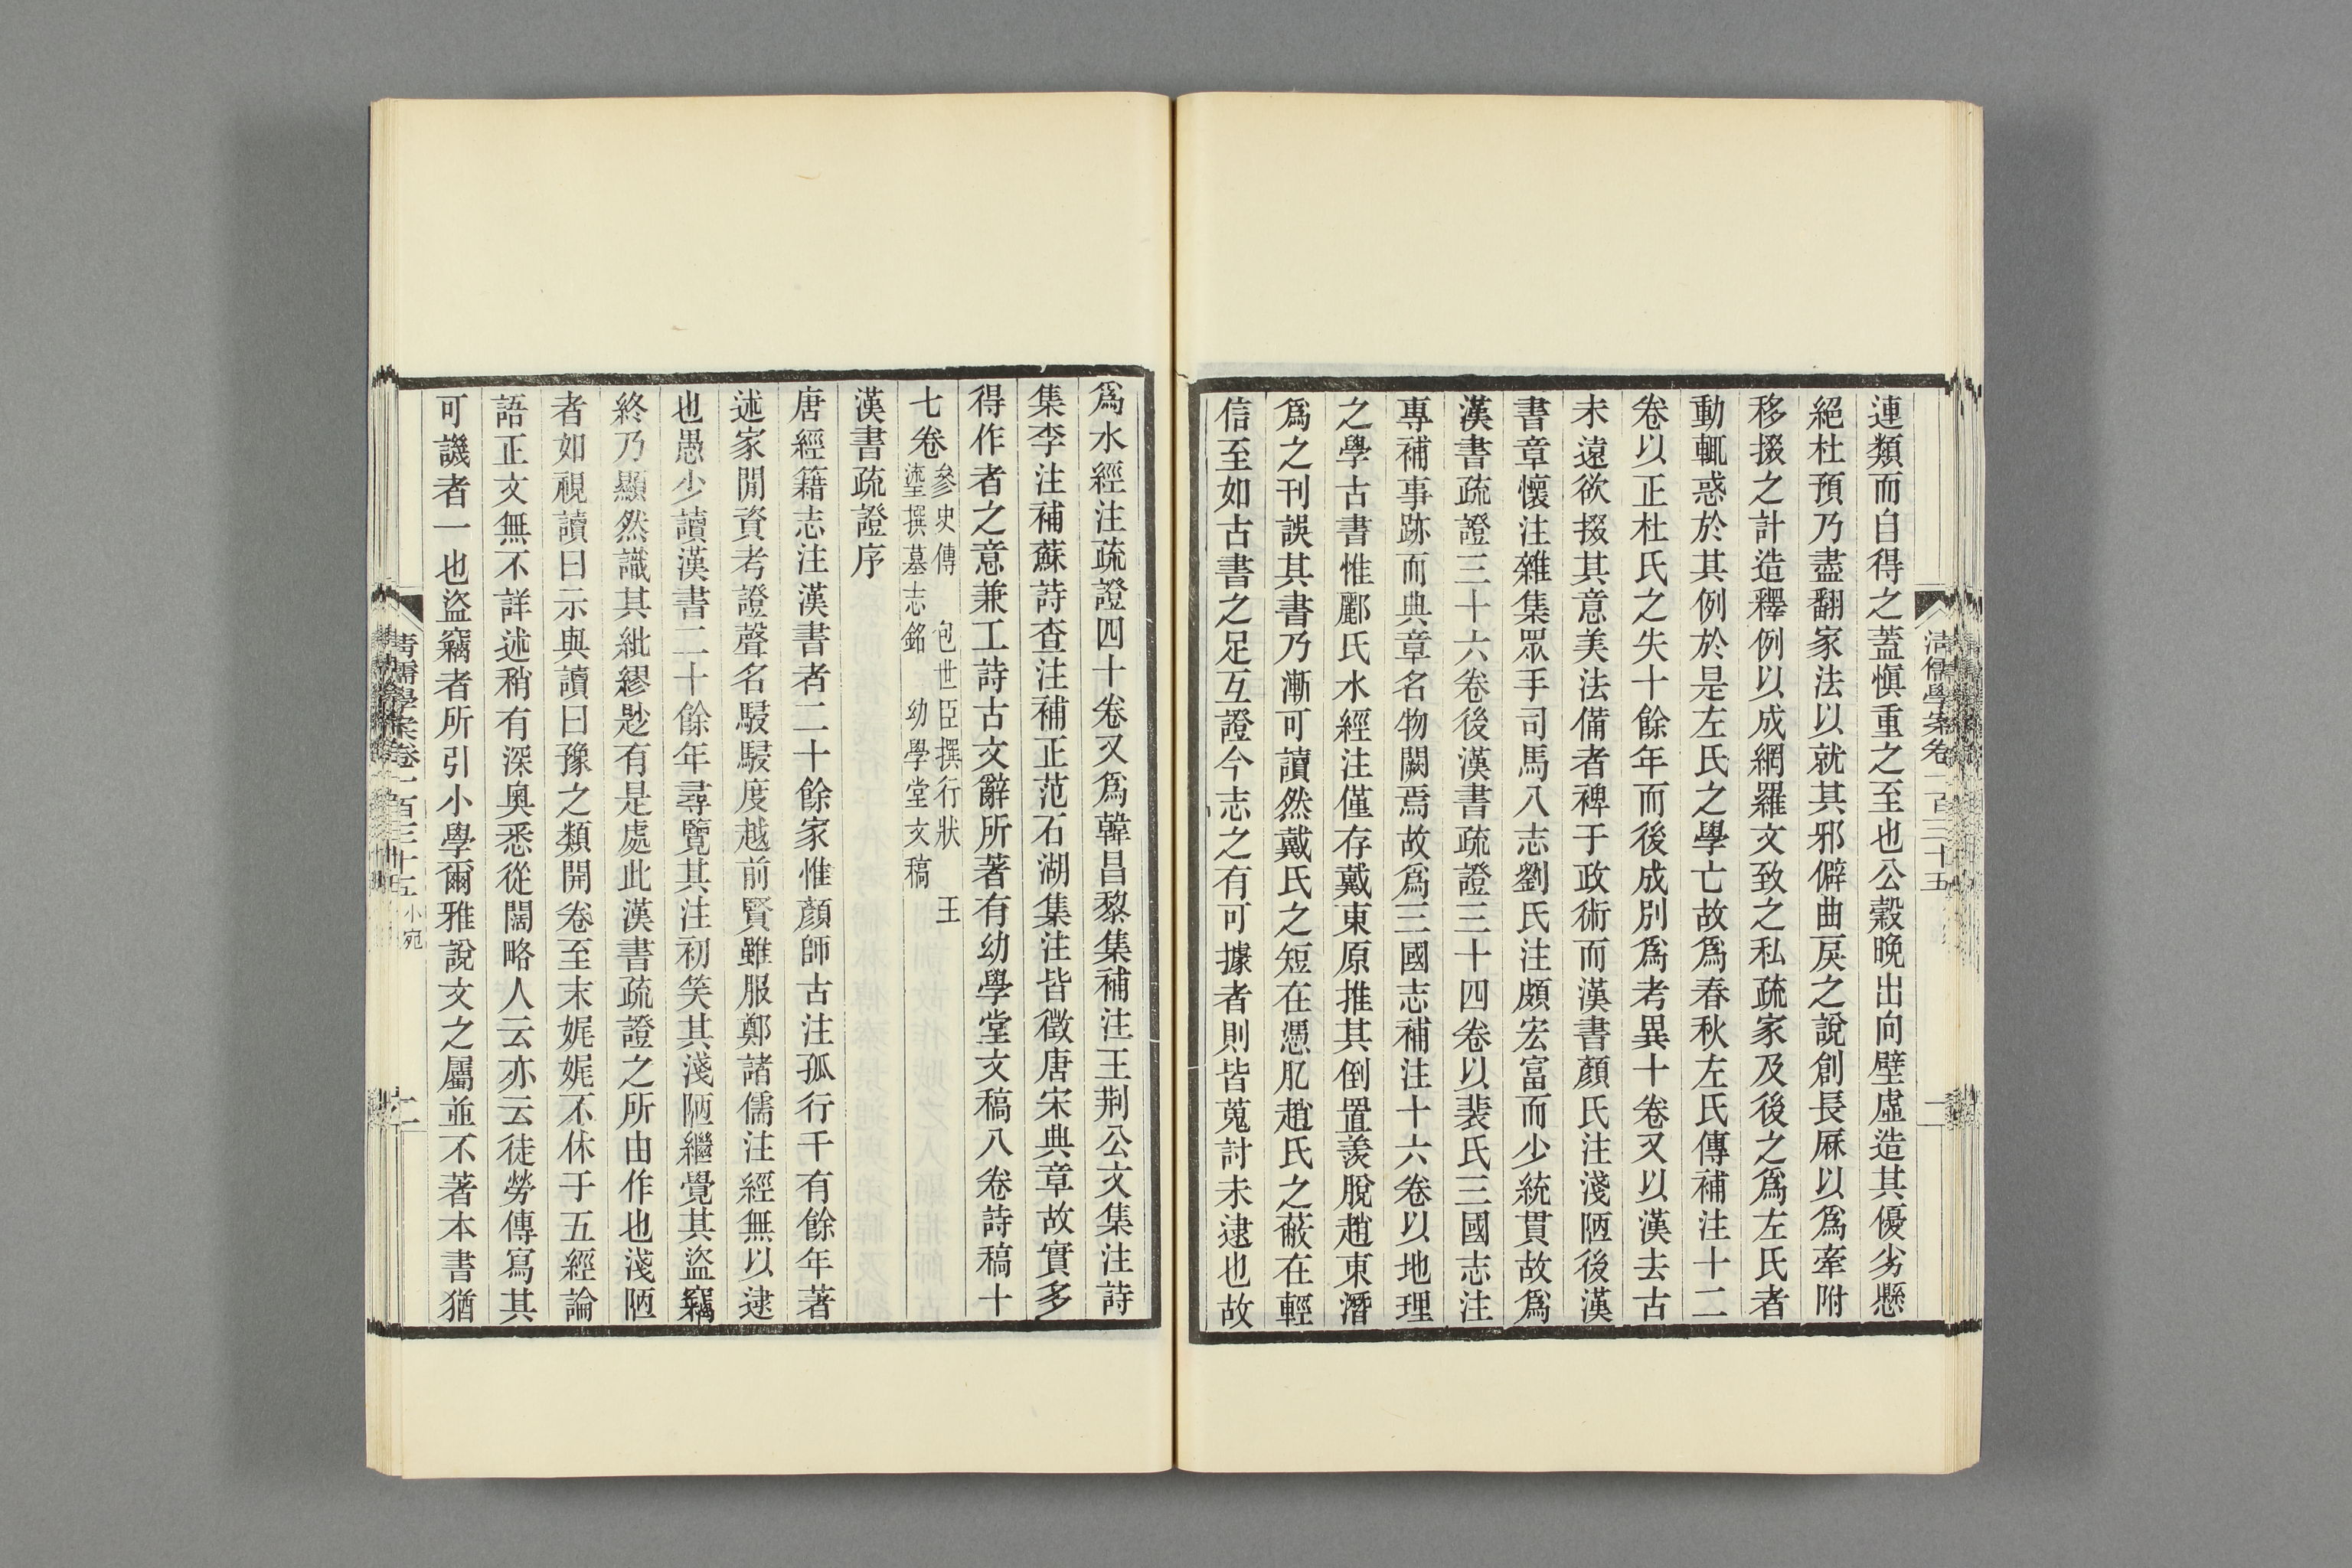 清儒學案卷一百三十五
一
連類而自得之蓋愼重之至也公穀晚出向壁虛造其優劣懸
絕杜預乃盡翻家法以就其邪僻曲戾之說創長厤以爲牽附
移掇之計造釋例以成網羅文致之私疏家及後之爲左氏者
動輒惑於其例於是左氏之學亡故爲春秋左氏傳補注十二
卷以正杜氏之失十餘年而後成別爲考異十卷又以漢去古
未遠欲掇其意美法備者裨于政術而漢書顏氏注淺陋後漢
書章懷注雜集眾手司馬八志劉氏注頗宏富而少統貫故爲
漢書疏證三十六卷後漢書疏證三十四卷以裴氏三國志注
專補事跡而典章名物闕焉故爲三國志補注十六卷以地理
之學古書惟酈氏水經注僅存戴東原推其倒置羨脫趙東潛
爲之刊誤其書乃漸可讀然戴氏之短在憑肊趙氏之蔽在輕
信至如古書之足互證今志之有可據者則皆蒐討未逮也故
爲水經注疏證四十卷又爲韓昌黎集補注王荆公文集注詩
集李注補蘇詩查注補正范石湖集注皆徵唐宋典章故實多
得作者之意兼工詩古文辭所著有幼學堂文稿八卷詩稿十
七卷參史傳 包世臣撰行狀 王
瑬撰墓志銘 幼學堂文稿
漢書疏證序
唐經籍志注漢書者二十餘家惟顏師古注孤行千有餘年著
述家閒資考證聲名駸駸度越前賢雖服鄭諸儒注經無以逮
也愚少讀漢書二十餘年尋覽其注初笑其淺陋繼覺其盜竊
終乃顯然識其紕繆尟有是處此漢書疏證之所由作也淺陋
者如視讀曰示與讀曰豫之類開卷至末娓娓不休于五經論
語正文無不詳述稍有深奧悉從闊略人云亦云徒勞傳寫其
可譏者一也盜竊者所引小學爾雅說文之屬並不著本書猶
清儒學案卷一百三十五 小宛
二